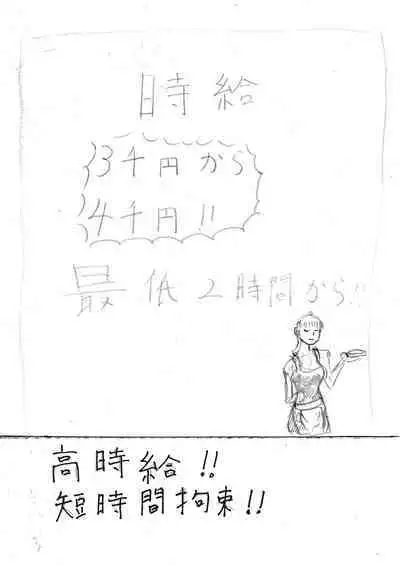 時給
3千円から
4千円!!
最低2時間から!!
高時給!!
短時間拘束!!
3